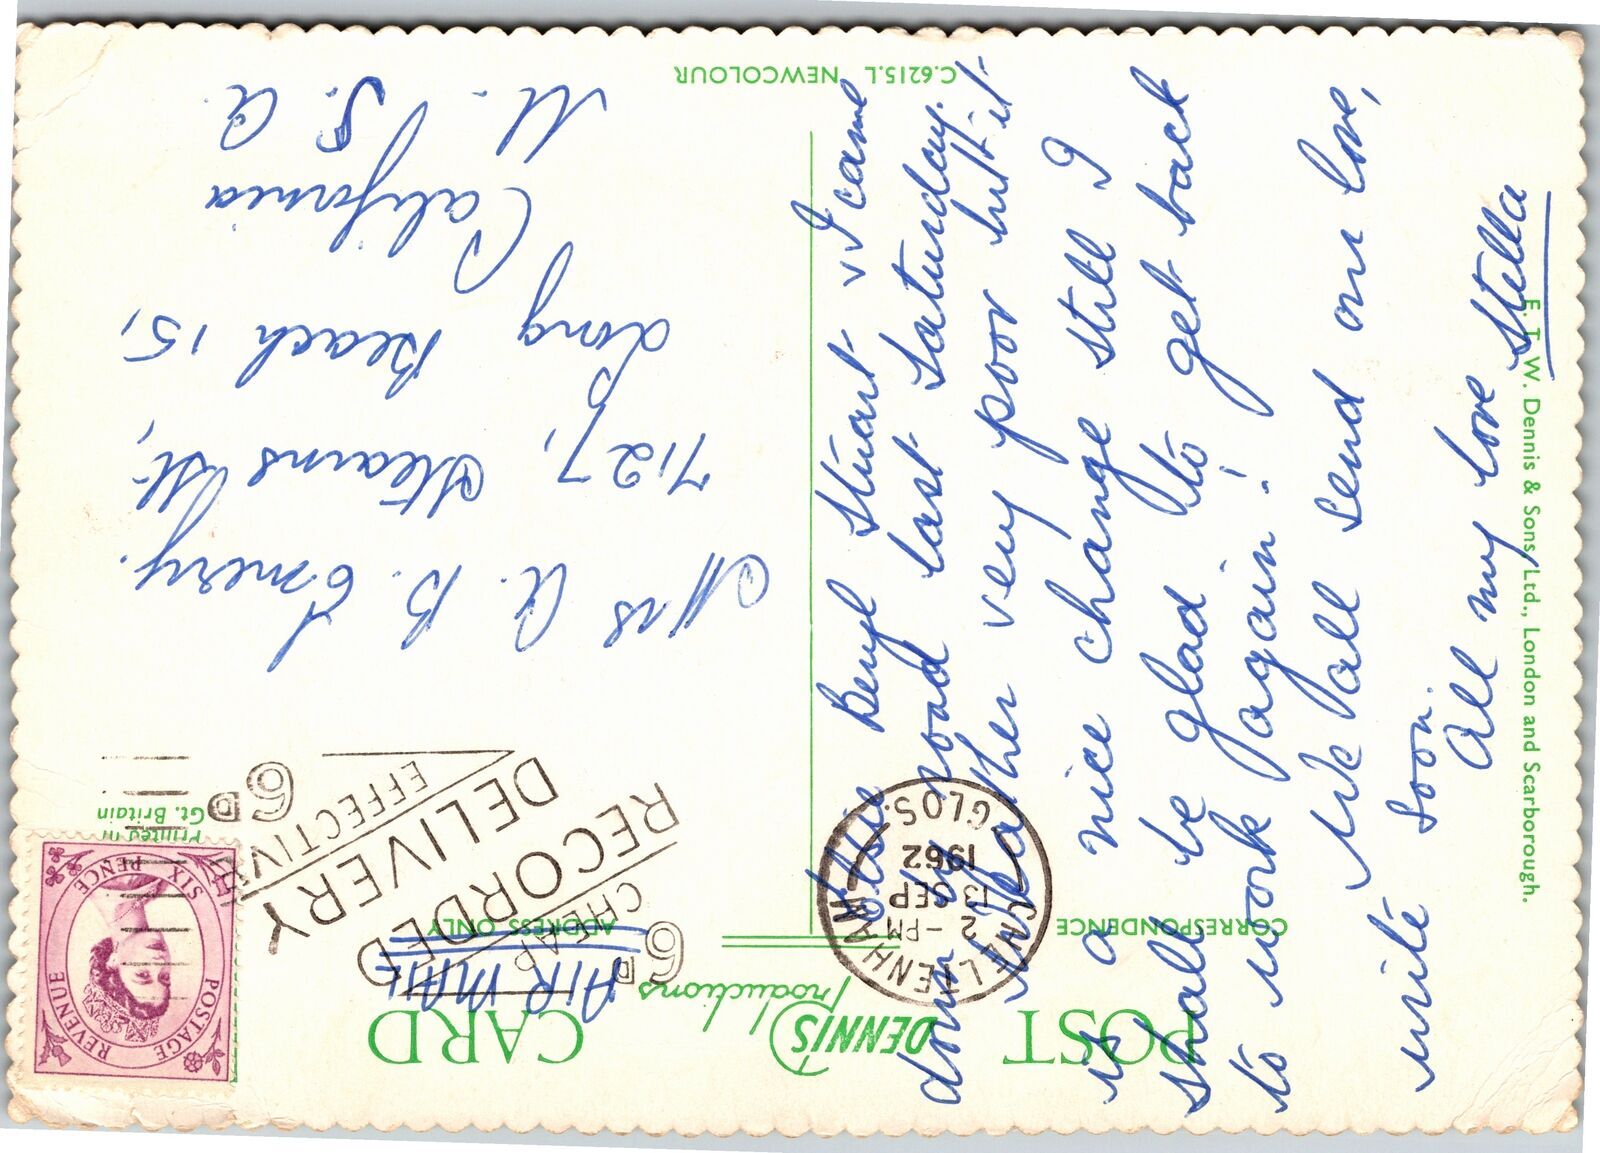 POST CARD
DENNIS
Productions
CORRESPONDENCE
ADDRESS ONLY
AIR MAIL
Printed in
Gt. Britain
POSTAGE
REVENUE
SIX PENCE
CHELTENHAM
2 - PM
13 SEP
1962
GLOS.
6D
CHEAP
RECORDED
DELIVERY
EFFECTIVE
6D
Elsie Beryl Stuart & I came
down by road last Saturday.
Weather very poor but it
is a nice change still I
shall be glad to get back
to work again!
We all send our love,
write soon.
All my love Stella
Mrs A. B. Emery.
7127, Stearns St.,
Long Beach 15,
California
U. S. A.
C.6215.L NEWCOLOUR
E. T. W. Dennis & Sons Ltd., London and Scarborough.